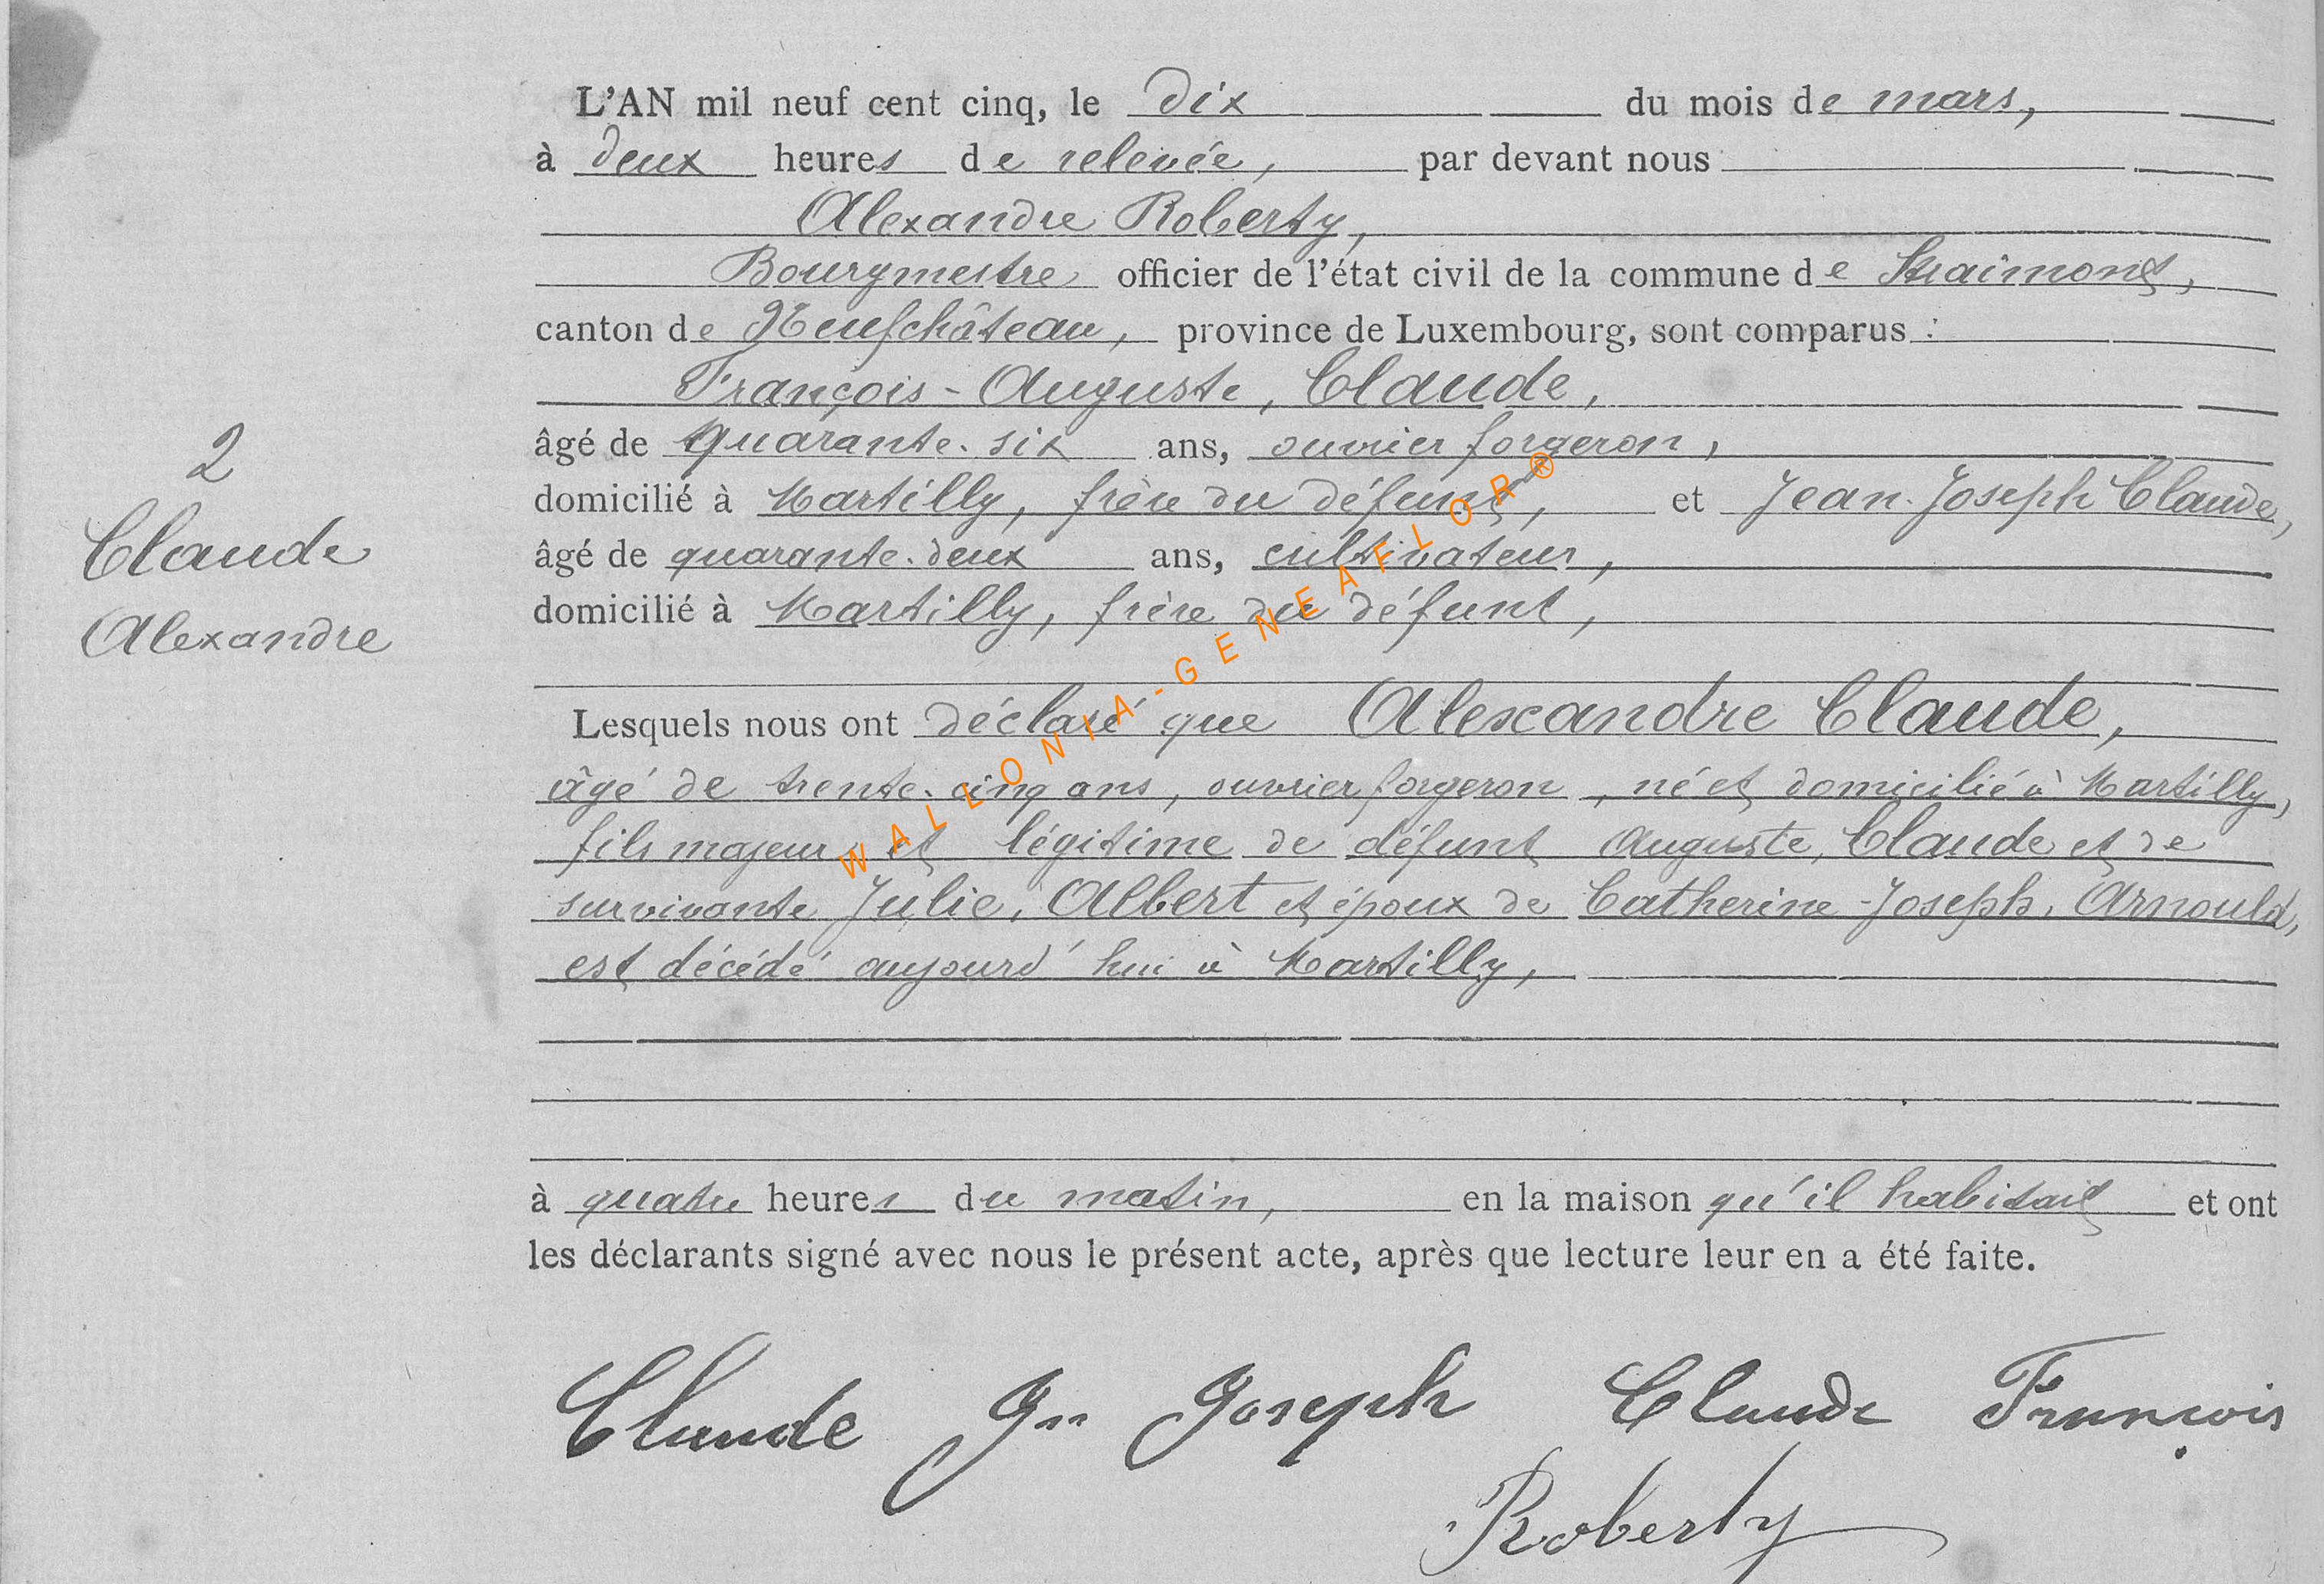 L'AN mil neuf cent cinq, le dix du mois de mars,
à deux heures de relevée, par devant nous
Alexandre Roberty,
Bourgmestre officier de l'état civil de la commune de Straimont,
canton de Neufchâteau, province de Luxembourg, sont comparus :
François-Auguste, Claude,
âgé de quarante-six ans, ouvrier forgeron,
domicilié à Martilly, frère du défunt, et Jean-Joseph Claude,
2
Claude
Alexandre
âgé de quarante-deux ans, cultivateur,
domicilié à Martilly, frère du défunt,
Lesquels nous ont déclaré que Alexandre Claude,
âgé de trente-cinq ans, ouvrier forgeron, né et domicilié à Martilly,
fils majeur et légitime de défunt Auguste, Claude et de
survivante Julie, Albert et époux de Catherine-Joseph, Arnould,
est décédé aujourd'hui à Martilly,
à quatre heures du matin, en la maison qu'il habitait et ont
les déclarants signé avec nous le présent acte, après que lecture leur en a été faite.
Claude Jn Joseph Claude François
Roberty
WALLONIA-GENEAFLOR®